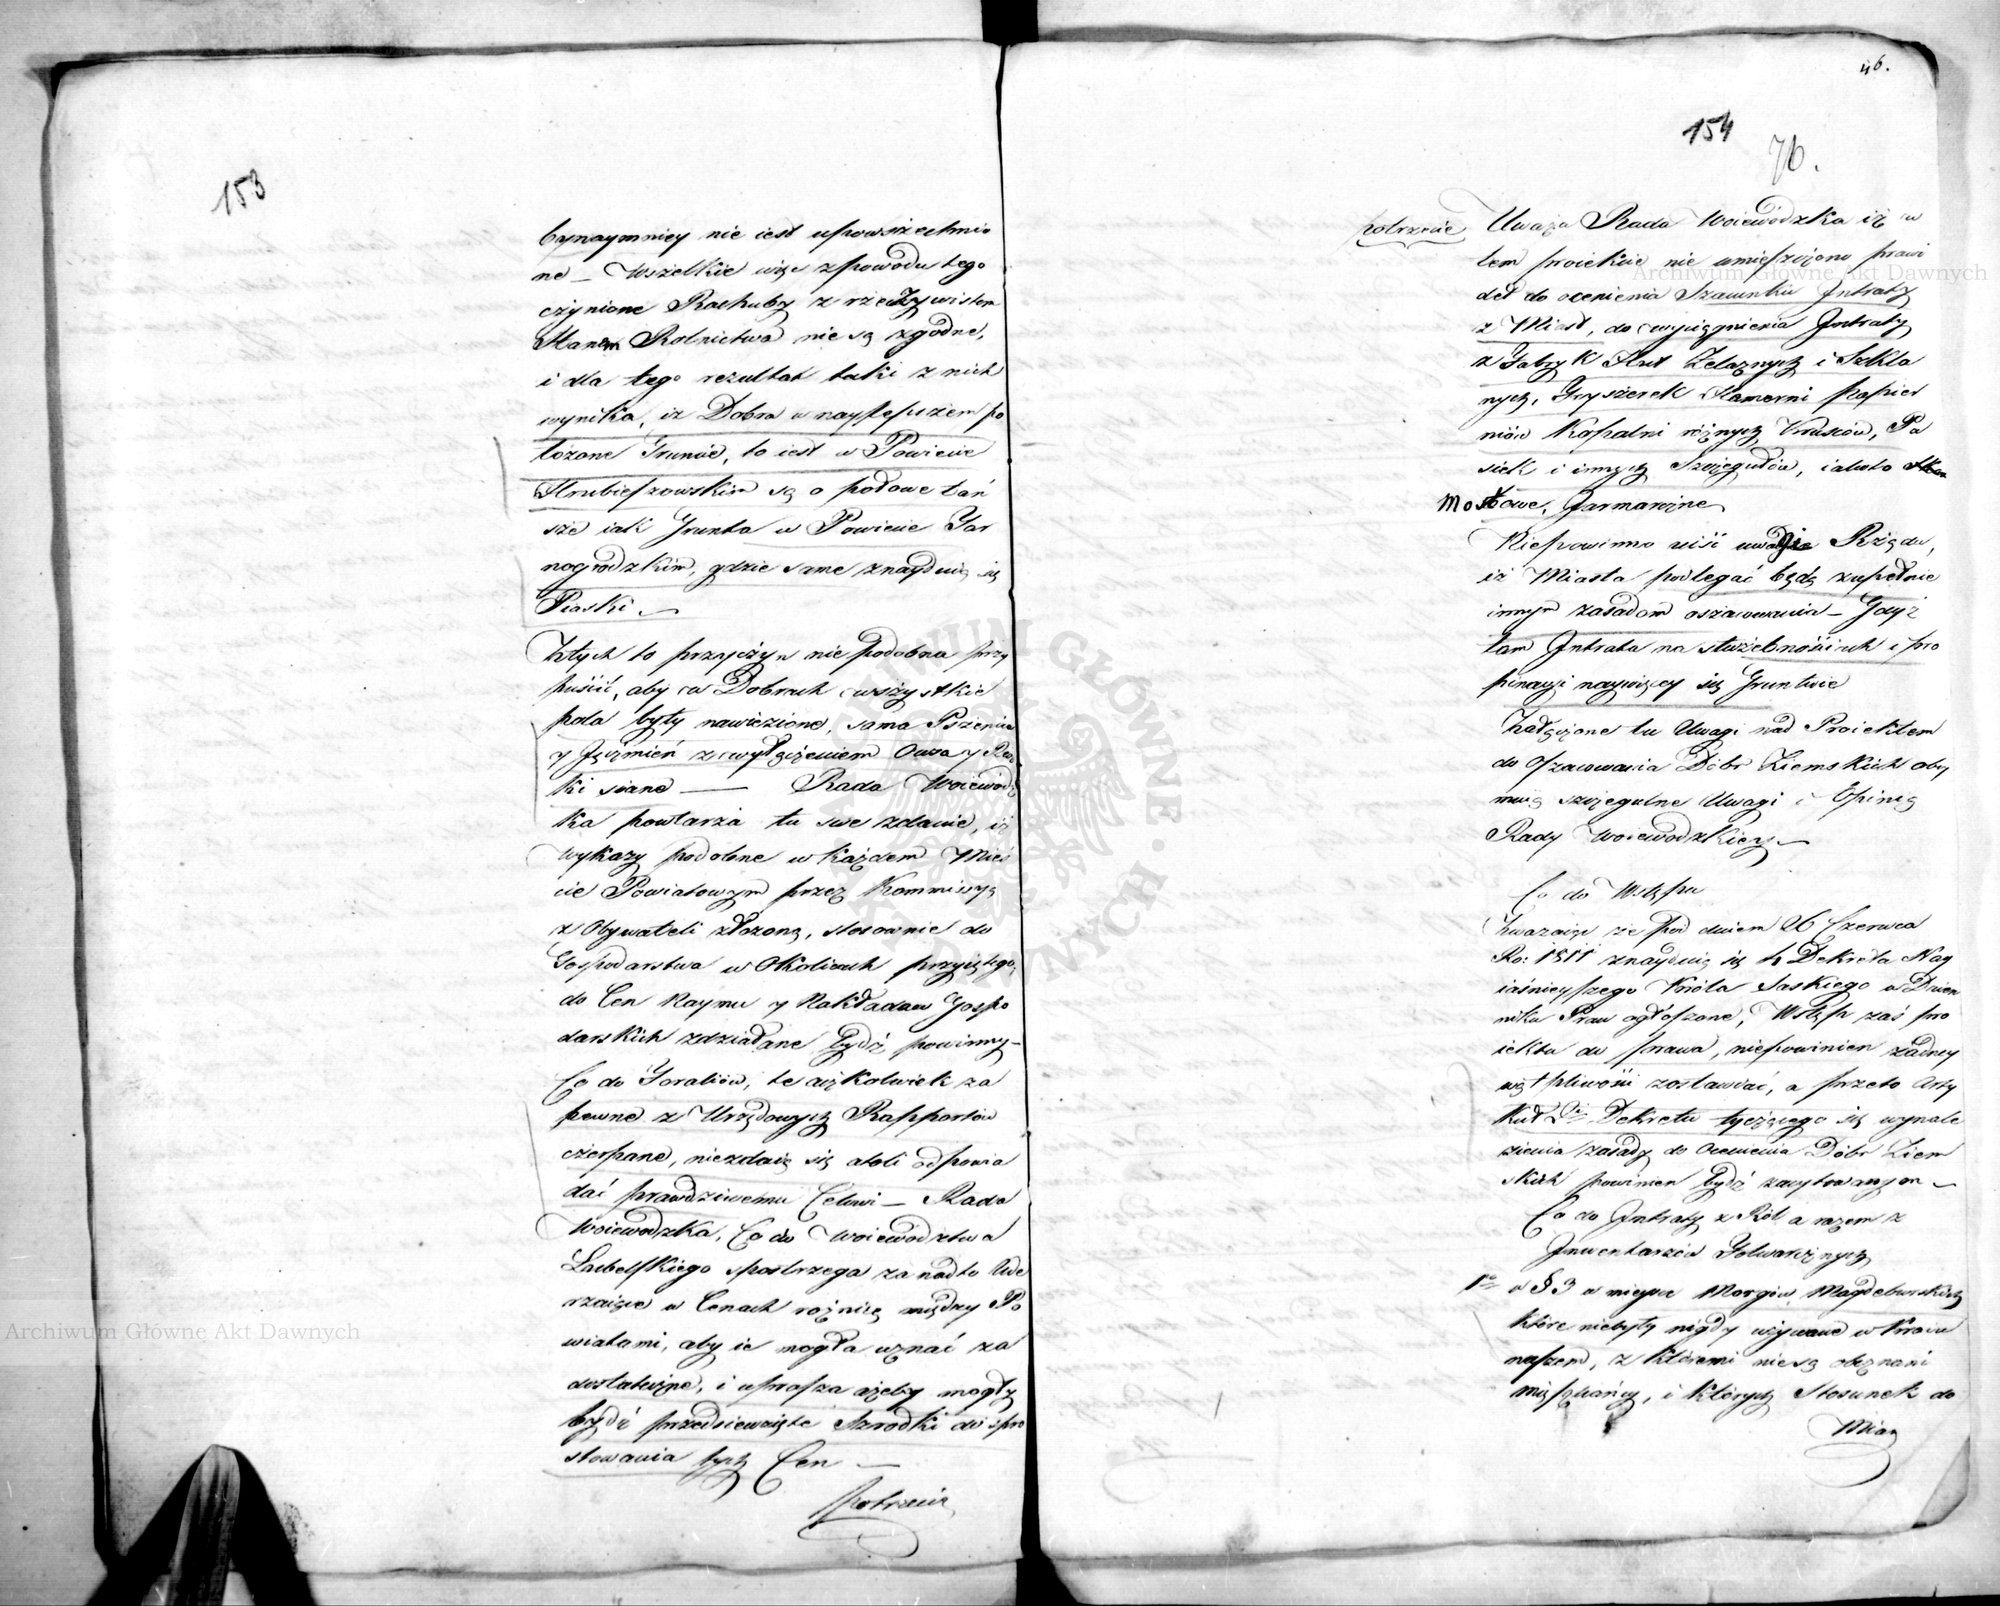 153
bynaymniey nie iest upowszechnio
ne – Wszelkie więc z powodu tego
czynione Rachuby z rzeczywistem
Stanem Rolnictwa nie są zgodne,
i dla tego rezultat taki z nich
wynika, iż Dobra w naylepszem po
łożone Gruncie, to iest w Powiecie
Hrubieszowskim są o połowę tań
sze iak Grunta w Powiecie Tar
nogrodzkim, gdzie same znayduią się
Piaski. –
Z tych to przyczyn nie podobna przy
puścić, aby w Dobrach wszystkie
pola były nawiezione, sama Pszenica
y Jęczmień z wyłączeniem Owsa y
ki siane — Rada Woiewódz
ka powtarza tu swe zdanie, iż
wykazy podobne w każdem Mieś
cie Powiatowym przez Kommissyą
z Obywateli złożoną, stosownie do
Gospodarstwa w Okolicach przyiętego,
do Cen Naymu y Nakładow Gospo
darskich zdziałane bydź powinny –
Co do Goraliów, te aczkolwiek za
pewne z Urzędowych Rapportów
czerpane, niezdaią się atoli odpowia
dać prawdziwemu Celowi – Rada
Woiewodzka, Co do Woiewództwa
Lubelskiego spostrzega za nadto Ude
rzaiące w Cenach rożnice między Po
wiatami, aby ie mogła uznać za
dostateczne, i uprasza ażeby mogły
bydź przedsiewzięte Szrodki do spro
stowania tych Cen –
potrzecie
46.
154
76.
potrzecie Uważa Rada Woiewódzka iż w
tem proiekcie nie umieszczono prawi
deł do ocenienia Szacunku Intraty
z Miast, do wyciągnienia Intraty
z Fabryk Hut Żelaznych i Szkla
nych, Fryszerek Hamerni papier
niów Kopalni różnych Kruszców, Pa
siek i innych Szczegułów, iakoto
Mostowe, Jarmarczne
Niepowinno uiść uwadze Rządu,
iż Miasta podlegać będą zupełnie
innym zasadom oszacowania – Gdyż
tam Intrata na służebnościach i pro
pinacyi naywięcy się Gruntuie
Załączone tu Uwagi nad Proiektem
do Oszacowania Dóbr Ziemskich oby
muią szczegulne Uwagi i Opinią
Rady Woiewodzkiey –
Co do Wstępu
Zważaiąc że pod dniem 26 Czerwca
Ro: 1811 znayduią się 4 Dekreta Nay
iaśnieyszego Króla Saskiego w Dzien
niku Praw ogłoszone, Wstęp zaś pro
iektu do prawa, niepowinien żadney
wątpliwości zostawiać, a przeto Arty
kuł Dekretu tyczącego się wynale
zienia zasady do Ocenienia Dóbr Ziem
skich powinien bydź zacytowanym –
Co do Intraty z Ról, a razem z
Inwentarzów Folwarcznych
1mo w § 3 w mieysce Morgów Magdeburskich
które niebyły nigdy używane w kraiu
naszem, z któremi nie są obeznani
mieszkańcy, i których Stosunek do
Miar
Archiwum Główne Akt Dawnych
Archiwum Główne Akt Dawnych